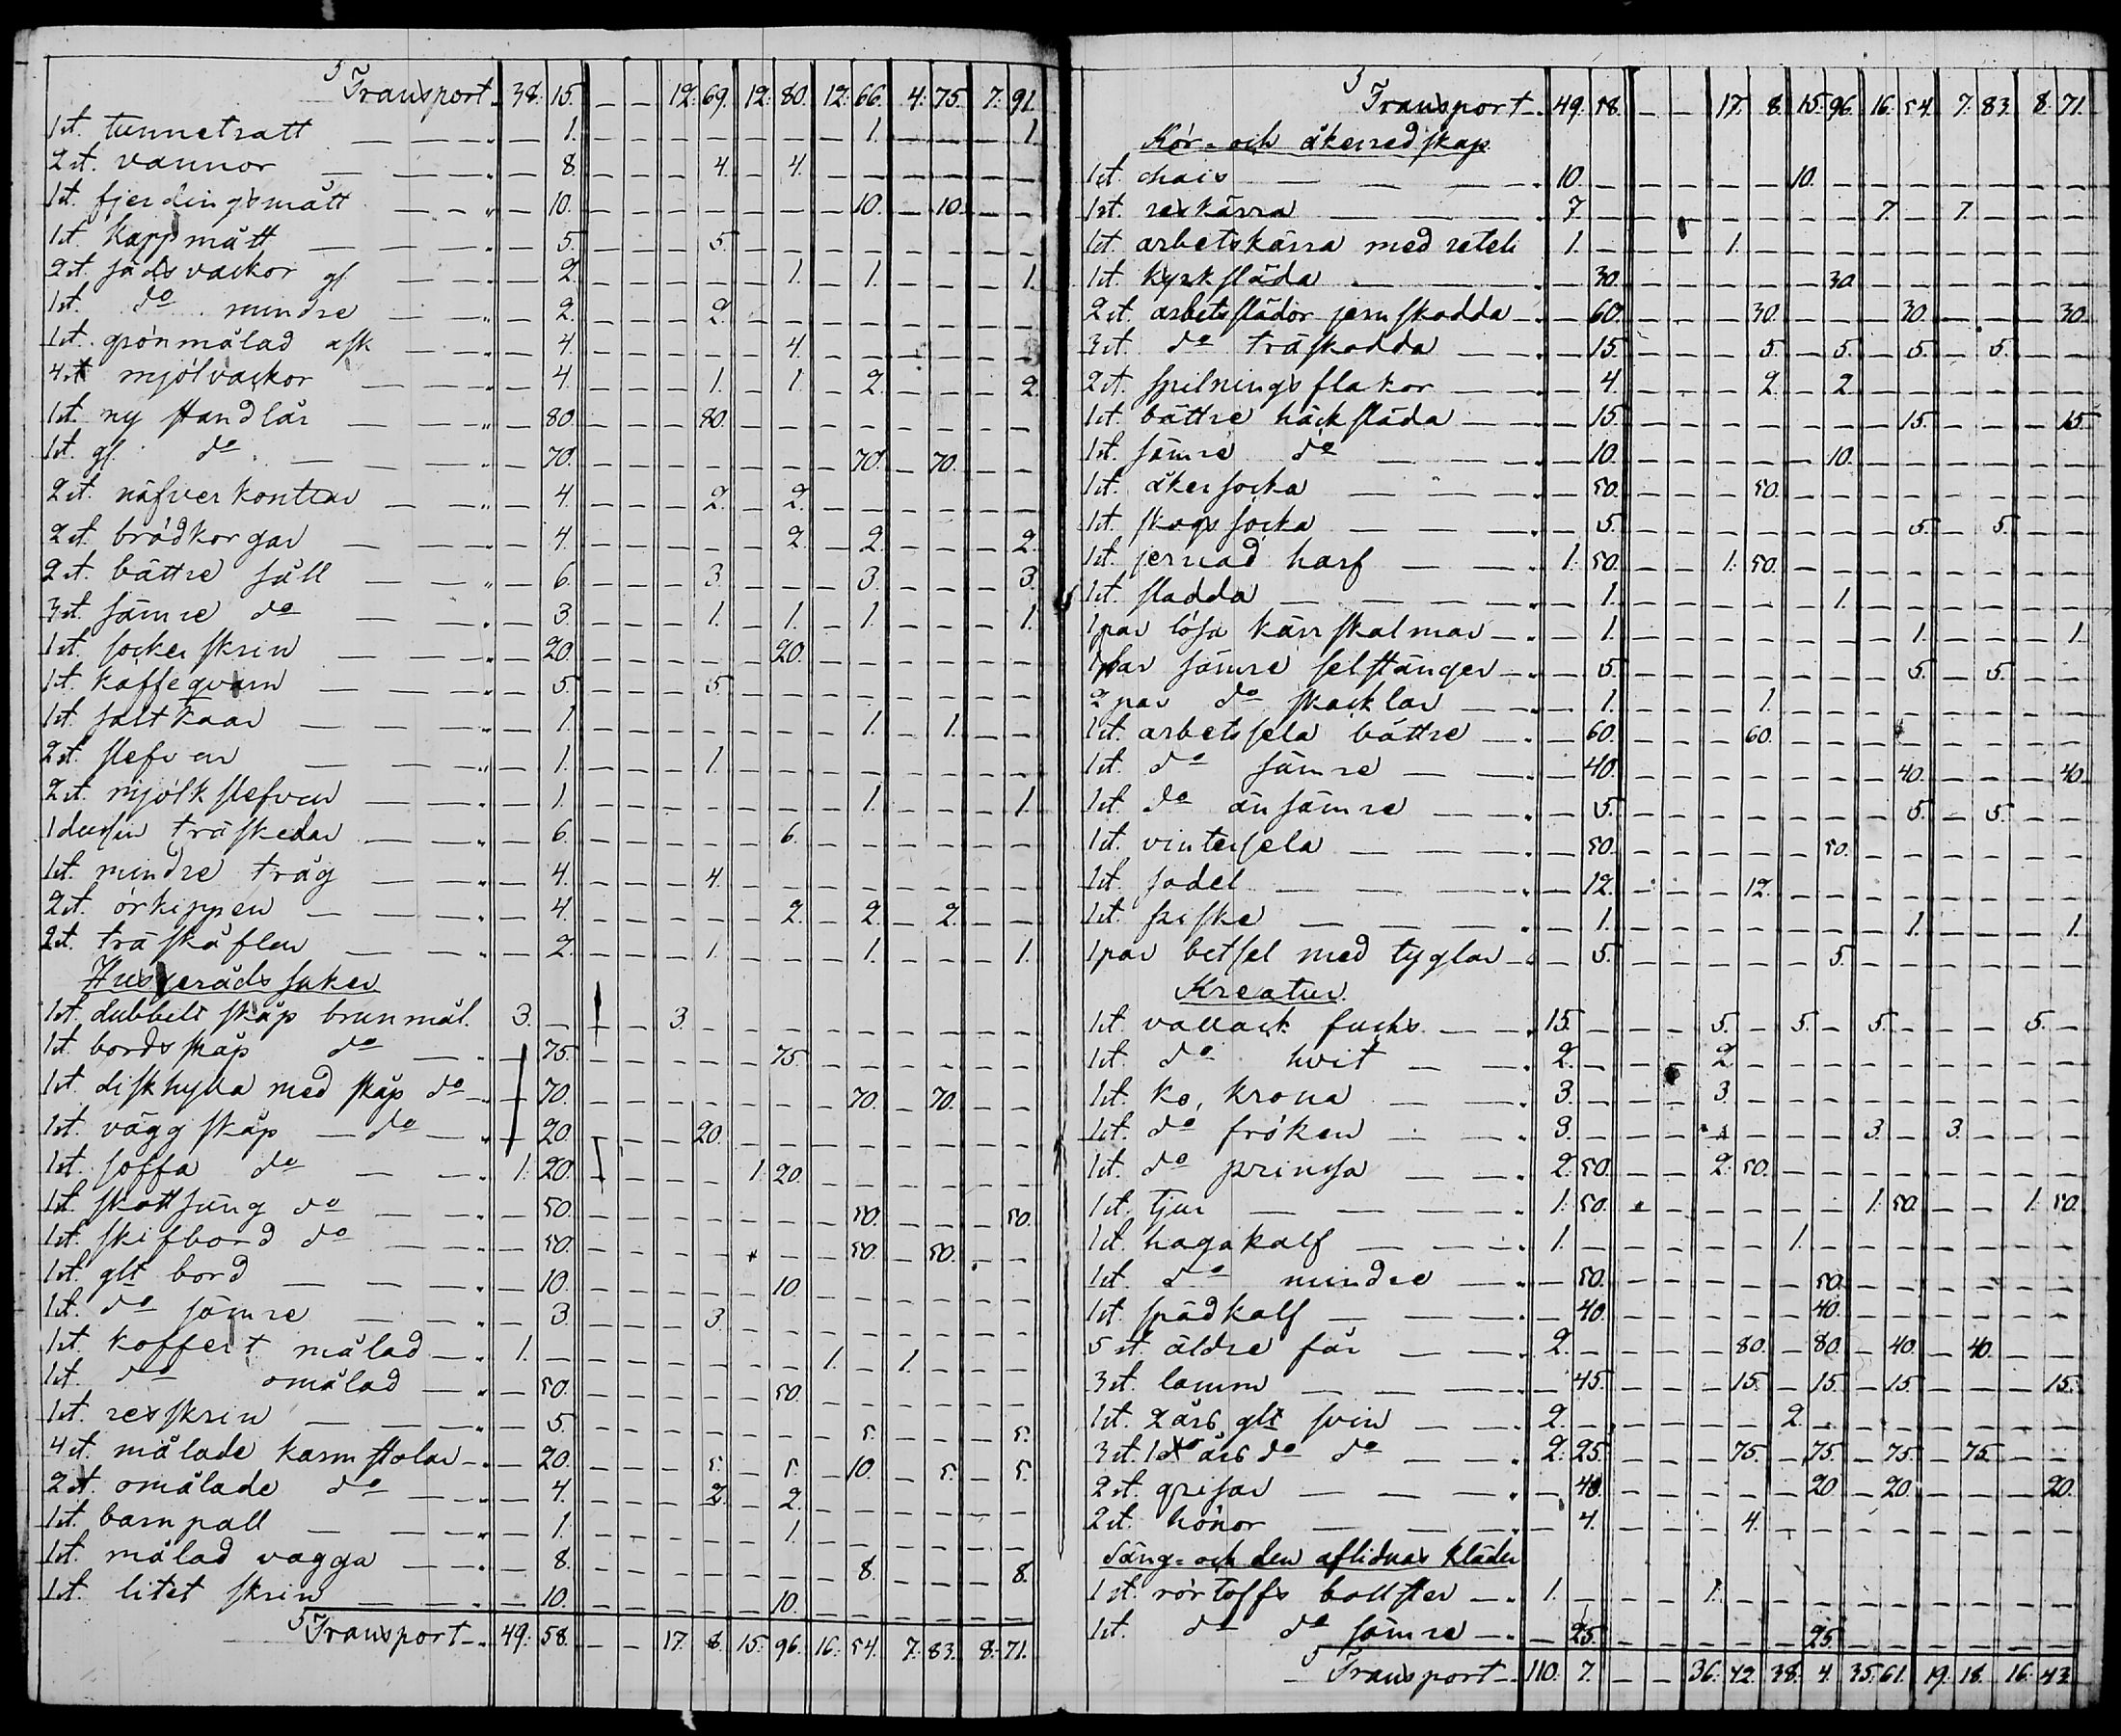 Transport 38. 15. — — 12. 69. 12. 80. 12. 66. 4. 75. 7. 91.
1 st. tunnetratt — 1. — — — — — — — 1. — — — 1.
2 st. vannor — 8. — — — 4. — 4. — — — — — —
1 st. fjerdingsmått — 10. — — — — — — — 10. — 10. — —
1 st. kappmått — 5. — — — 5. — — — — — — — —
2 st. sädsvackor gl. — 2. — — — — — 1. — 1. — — — 1.
1 st. do mindre — 2. — — — 2. — — — — — — — —
1 st. grönmålad ask — 4. — — — — — 4. — — — — — —
4 st. mjölvackor — 4. — — — 1. — 1. — 2. — — — 2.
1 st. ny standlår — 80. — — — 80. — — — — — — — —
1 st. gl. do — 70. — — — — — — — 70. — 70. — —
2 st. näfverkontar — 4. — — — 2. — 2. — — — — — —
2 st. brödkorgar — 4. — — — — — 2. — 2. — — — 2.
2 st. bättre såll — 6. — — — 3. — — — 3. — — — 3.
3 st. sämre do — 3. — — — 1. — 1. — 1. — — — 1.
1 st. sockerskrin — 20. — — — — — 20. — — — — — —
1 st. kaffeqvarn — 5. — — — 5. — — — — — — — —
1 st. saltkaar — 1. — — — — — — — 1. — 1. — —
2 st. slefvar — 1. — — — 1. — — — — — — — —
2 st. mjölkslefvar — 1. — — — — — — — 1. — — — 1.
1 dussin träskedar — 6. — — — — — 6. — — — — — —
1 st. mindre tråg — 4. — — — 4. — — — — — — — —
2 st. örkippen — 4. — — — — — 2. — 2. — 2. — —
2 st. träskåflar — 2. — — — 1. — — — 1. — — — 1.
Husgerådssaker
1 st. dubbelt skåp brunmål. 3. — — — 3. — — — — — — — — —
1 st. bordsskåp do — 75. — — — — — 75. — — — — — —
1 st. diskhylla med skåp do — 70. — — — — — — — 70. — 70. — —
1 st. väggskåp — do — 20. — — — 20. — — — — — — — —
1 st. soffa do 1. 20. — — — — 1. 20. — — — — — —
1 st. skottsäng do — 50. — — — — — — — 50. — — — 50.
1 st. skifbord do — 50. — — — — — — — 50. — 50. — —
1 st. glt bord — 10. — — — — — 10. — — — — — —
1 st. do sämre — 3. — — — 3. — — — — — — — —
1 st. koffert målad 1. — — — — — — — 1. — 1. — — —
1 st. do omålad — 50. — — — — — 50. — — — — — —
1 st. resskrin — 5. — — — — — — — 5. — — — 5.
4 st. målade karmstolar — 20. — — — 5. — 5. — 10. — 5. — 5.
2 st. omålade do — 4. — — — 2. — 2. — — — — — —
1 st. barnpall — 1. — — — — — 1. — — — — — —
1 st. målad vagga — 8. — — — — — — — 8. — — — 8.
1 st. litet skrin — 10. — — — — — 10. — — — — — —
Transport 49. 58. — — 17. 8. 15. 96. 16. 54. 7. 83. 8. 71.
Transport 49. 58. — — 17. 8. 15. 96. 16. 54. 7. 83. 8. 71.
Kör- och åkerredskap
1 st. chais 10. — — — — — 10. — — — — — — —
1 st. reskärra 7. — — — — — — — 7. — 7. — — —
1 st. arbetskärra med reteli 1. — — — 1. — — — — — — — — —
1 st. kyrksläda — 30. — — — — — 30. — — — — — —
2 st. arbetsslädor jernskodda — 60. — — — 30. — — — 30. — — — 30.
3 st. do träskodda — 15. — — — 5. — 5. — 5. — 5. — —
2 st. spilningsflakor — 4. — — — 2. — 2. — — — — — —
1 st. bättre häcksläda — 15. — — — — — — — 15. — — — 15.
1 st. sämre do — 10. — — — — — 10. — — — — — —
1 st. åkersocka — 50. — — — 50. — — — — — — — —
1 st. skogssocka — 5. — — — — — — — 5. — 5. — —
1 st. jernad harf 1. 50. — — 1. 50. — — — — — — — —
1 st. sladda — 1. — — — — — 1. — — — — — —
1 par lösa kärrskalmar — 1. — — — — — — — 1. — — — 1.
1 par sämre selstänger — 5. — — — — — — — 5. — 5. — —
2 par do skacklar — 1. — — — 1. — — — — — — — —
1 st. arbetssela bättre — 60. — — — 60. — — — — — — — —
1 st. do sämre — 40. — — — — — — — 40. — — — 40.
1 st. do änsämre — 5. — — — — — — — 5. — 5. — —
1 st. vintersela — 50. — — — — — 50. — — — — — —
1 st. sadel — 12. — — — 12. — — — — — — — —
1 st. piska — 1. — — — — — — — 1. — — — 1.
1 par betsel med tyglar — 5. — — — — — 5. — — — — — —
Kreatur.
1 st. vallack fuchs 15. — — — 5. — 5. — 5. — — — 5. —
1 st. do hvit 2. — — — 2. — — — — — — — — —
1 st. ko, krona 3. — — — 3. — — — — — — — — —
1 st. do fröken 3. — — — — — — — 3. — 3. — — —
1 st. do prinsa 2. 50. — — 2. 50. — — — — — — — —
1 st. tjur 1. 50. — — — — — — 1. 50. — — 1. 50.
1 st. hagakalf 1. — — — — — 1. — — — — — — —
1 st. do mindre — 50. — — — — — 50. — — — — — —
1 st. spädkalf — 40. — — — — — 40. — — — — — —
5 st. äldre får 2. — — — — 80. — 80. — 40. — 40. — —
3 st. lamm — 45. — — — 15. — 15. — 15. — — — 15.
1 st. 2 års glt svin 2. — — — — — 2. — — — — — — —
3 st. 1 års do do 2. 25. — — — 75. — 75. — 75. — 75. — —
2 st. grisar — 40. — — — — — 20. — 20. — — — 20.
2 st. hönor — 4. — — — 4. — — — — — — — —
Säng- och den aflidnas kläder
1 st. rörtoffs bollster 1. — — — 1. — — — — — — — — —
1 st. do do sämre — 25. — — — — — 25. — — — — — —
Transport 110. 7. — — 36. 72. 38. 4. 35. 61. 19. 18. 16. 43.